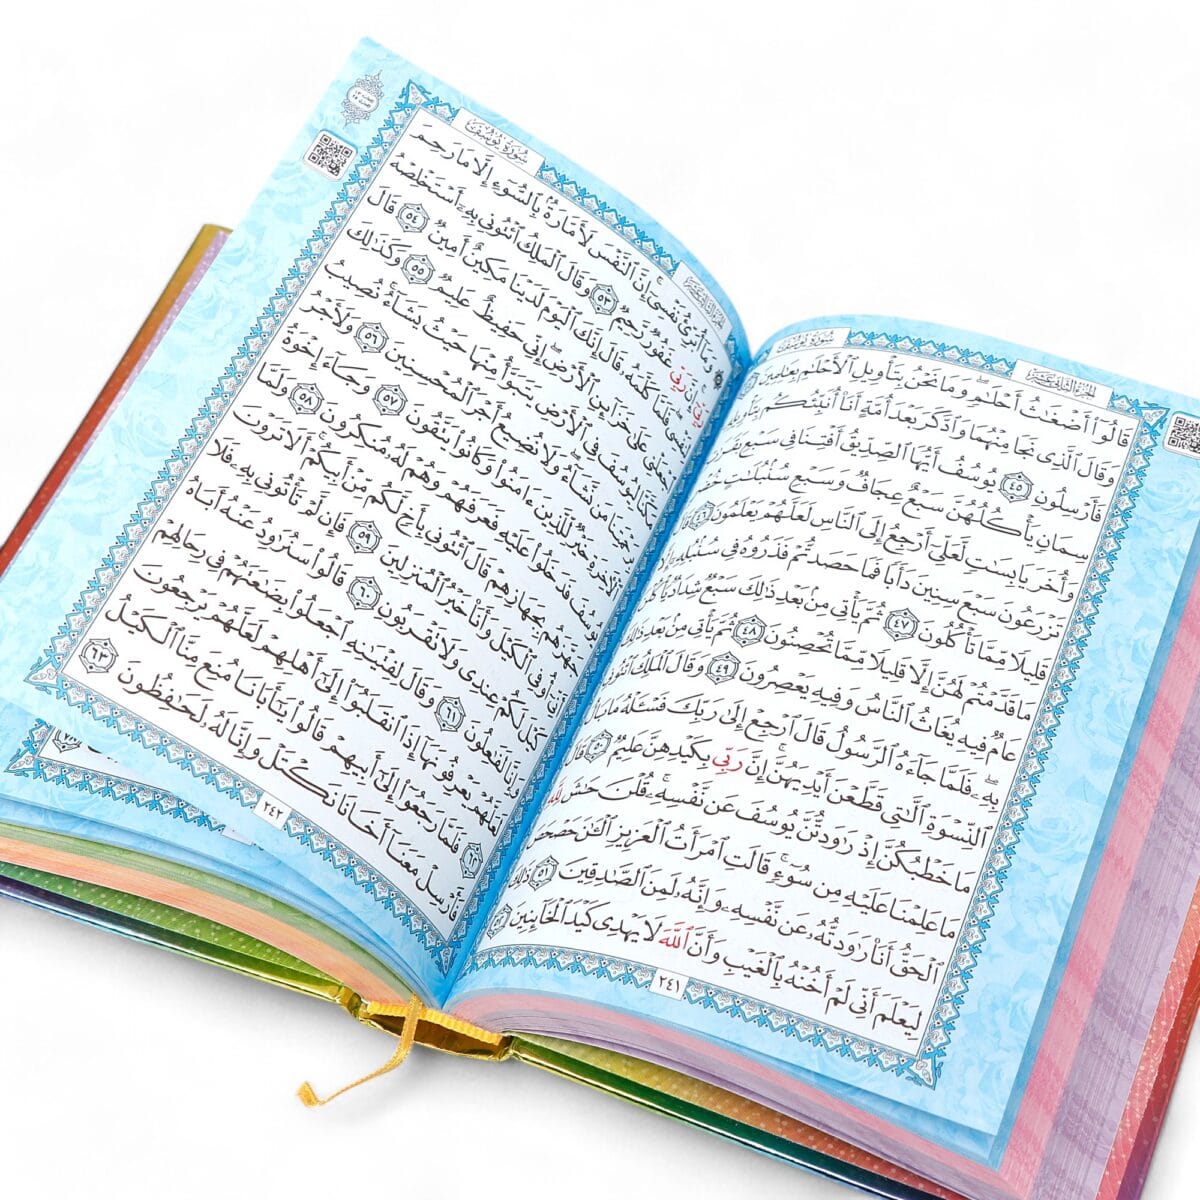 سُورَةُ يُوسُفَ
الجُزْءُ الثَّانِي عَشَرَ
قَالُوٓا۟ أَضْغَـٰثُ أَحْلَـٰمٍ ۖ وَمَا نَحْنُ بِتَأْوِيلِ ٱلْأَحْلَـٰمِ بِعَـٰلِمِينَ
وَقَالَ ٱلَّذِى نَجَا مِنْهُمَا وَٱدَّكَرَ بَعْدَ أُمَّةٍ أَنَا۠ أُنَبِّئُكُم بِتَأْوِيلِهِۦ
فَأَرْسِلُونِ ٤٥ يُوسُفُ أَيُّهَا ٱلصِّدِّيقُ أَفْتِنَا فِى سَبْعِ
سِمَانٍ يَأْكُلُهُنَّ سَبْعٌ عِجَافٌ وَسَبْعِ سُنۢبُلَـٰتٍ
وَأُخَرَ يَابِسَـٰتٍ لَّعَلِّىٓ أَرْجِعُ إِلَى ٱلنَّاسِ لَعَلَّهُمْ يَعْلَمُونَ ٤٦
تَزْرَعُونَ سَبْعَ سِنِينَ دَأَبًا فَمَا حَصَدتُّمْ فَذَرُوهُ فِى سُنۢبُلِهِۦٓ
قَلِيلًا مِّمَّا تَأْكُلُونَ ٤٧ ثُمَّ يَأْتِى مِنۢ بَعْدِ ذَٰلِكَ سَبْعٌ شِدَادٌ يَأْكُلْنَ
مَا قَدَّمْتُمْ لَهُنَّ إِلَّا قَلِيلًا مِّمَّا تُحْصِنُونَ ٤٨ ثُمَّ يَأْتِى مِنۢ بَعْدِ ذَٰلِكَ
عَامٌ فِيهِ يُغَاثُ ٱلنَّاسُ وَفِيهِ يَعْصِرُونَ ٤٩ وَقَالَ ٱلْمَلِكُ ٱئْتُونِى
بِهِۦ ۖ فَلَمَّا جَآءَهُ ٱلرَّسُولُ قَالَ ٱرْجِعْ إِلَىٰ رَبِّكَ فَسْـَٔلْهُ مَا بَالُ
ٱلنِّسْوَةِ ٱلَّـٰتِى قَطَّعْنَ أَيْدِيَهُنَّ ۚ إِنَّ رَبِّى بِكَيْدِهِنَّ عَلِيمٌ ٥٠ قَالَ
مَا خَطْبُكُنَّ إِذْ رَٰوَدتُّنَّ يُوسُفَ عَن نَّفْسِهِۦ ۚ قُلْنَ حَـٰشَ لِلَّهِ
مَا عَلِمْنَا عَلَيْهِ مِن سُوٓءٍ ۚ قَالَتِ ٱمْرَأَتُ ٱلْعَزِيزِ ٱلْـَٔـٰنَ حَصْحَصَ
ٱلْحَقُّ أَنَا۠ رَٰوَدتُّهُۥ عَن نَّفْسِهِۦ وَإِنَّهُۥ لَمِنَ ٱلصَّـٰدِقِينَ ٥١ ذَٰلِكَ
لِيَعْلَمَ أَنِّى لَمْ أَخُنْهُ بِٱلْغَيْبِ وَأَنَّ ٱللَّهَ لَا يَهْدِى كَيْدَ ٱلْخَآئِنِينَ ٥٢
٢٤١
سُورَةُ يُوسُفَ
۞ وَمَآ أُبَرِّئُ نَفْسِىٓ ۚ إِنَّ ٱلنَّفْسَ لَأَمَّارَةٌۢ بِٱلسُّوٓءِ إِلَّا مَا رَحِمَ
رَبِّىٓ ۚ إِنَّ رَبِّى غَفُورٌ رَّحِيمٌ ٥٣ وَقَالَ ٱلْمَلِكُ ٱئْتُونِى بِهِۦٓ أَسْتَخْلِصْهُ
لِنَفْسِى ۖ فَلَمَّا كَلَّمَهُۥ قَالَ إِنَّكَ ٱلْيَوْمَ لَدَيْنَا مَكِينٌ أَمِينٌ ٥٤ قَالَ
ٱجْعَلْنِى عَلَىٰ خَزَآئِنِ ٱلْأَرْضِ ۖ إِنِّى حَفِيظٌ عَلِيمٌ ٥٥ وَكَذَٰلِكَ
مَكَّنَّا لِيُوسُفَ فِى ٱلْأَرْضِ يَتَبَوَّأُ مِنْهَا حَيْثُ يَشَآءُ ۚ نُصِيبُ
بِرَحْمَتِنَا مَن نَّشَآءُ ۖ وَلَا نُضِيعُ أَجْرَ ٱلْمُحْسِنِينَ ٥٦ وَلَأَجْرُ
ٱلْـَٔاخِرَةِ خَيْرٌ لِّلَّذِينَ ءَامَنُوا۟ وَكَانُوا۟ يَتَّقُونَ ٥٧ وَجَآءَ إِخْوَةُ
يُوسُفَ فَدَخَلُوا۟ عَلَيْهِ فَعَرَفَهُمْ وَهُمْ لَهُۥ مُنكِرُونَ ٥٨ وَلَمَّا
جَهَّزَهُم بِجَهَازِهِمْ قَالَ ٱئْتُونِى بِأَخٍ لَّكُم مِّنْ أَبِيكُمْ ۚ أَلَا تَرَوْنَ
أَنِّىٓ أُوفِى ٱلْكَيْلَ وَأَنَا۠ خَيْرُ ٱلْمُنزِلِينَ ٥٩ فَإِن لَّمْ تَأْتُونِى بِهِۦ فَلَا
كَيْلَ لَكُمْ عِندِى وَلَا تَقْرَبُونِ ٦٠ قَالُوا۟ سَنُرَٰوِدُ عَنْهُ أَبَاهُ
وَإِنَّا لَفَـٰعِلُونَ ٦١ وَقَالَ لِفِتْيَـٰنِهِ ٱجْعَلُوا۟ بِضَـٰعَتَهُمْ فِى رِحَالِهِمْ
لَعَلَّهُمْ يَعْرِفُونَهَآ إِذَا ٱنقَلَبُوٓا۟ إِلَىٰٓ أَهْلِهِمْ لَعَلَّهُمْ يَرْجِعُونَ
٦٢ فَلَمَّا رَجَعُوٓا۟ إِلَىٰٓ أَبِيهِمْ قَالُوا۟ يَـٰٓأَبَانَا مُنِعَ مِنَّا ٱلْكَيْلُ
فَأَرْسِلْ مَعَنَآ أَخَانَا نَكْتَلْ وَإِنَّا لَهُۥ لَحَـٰفِظُونَ ٦٣
٢٤٢